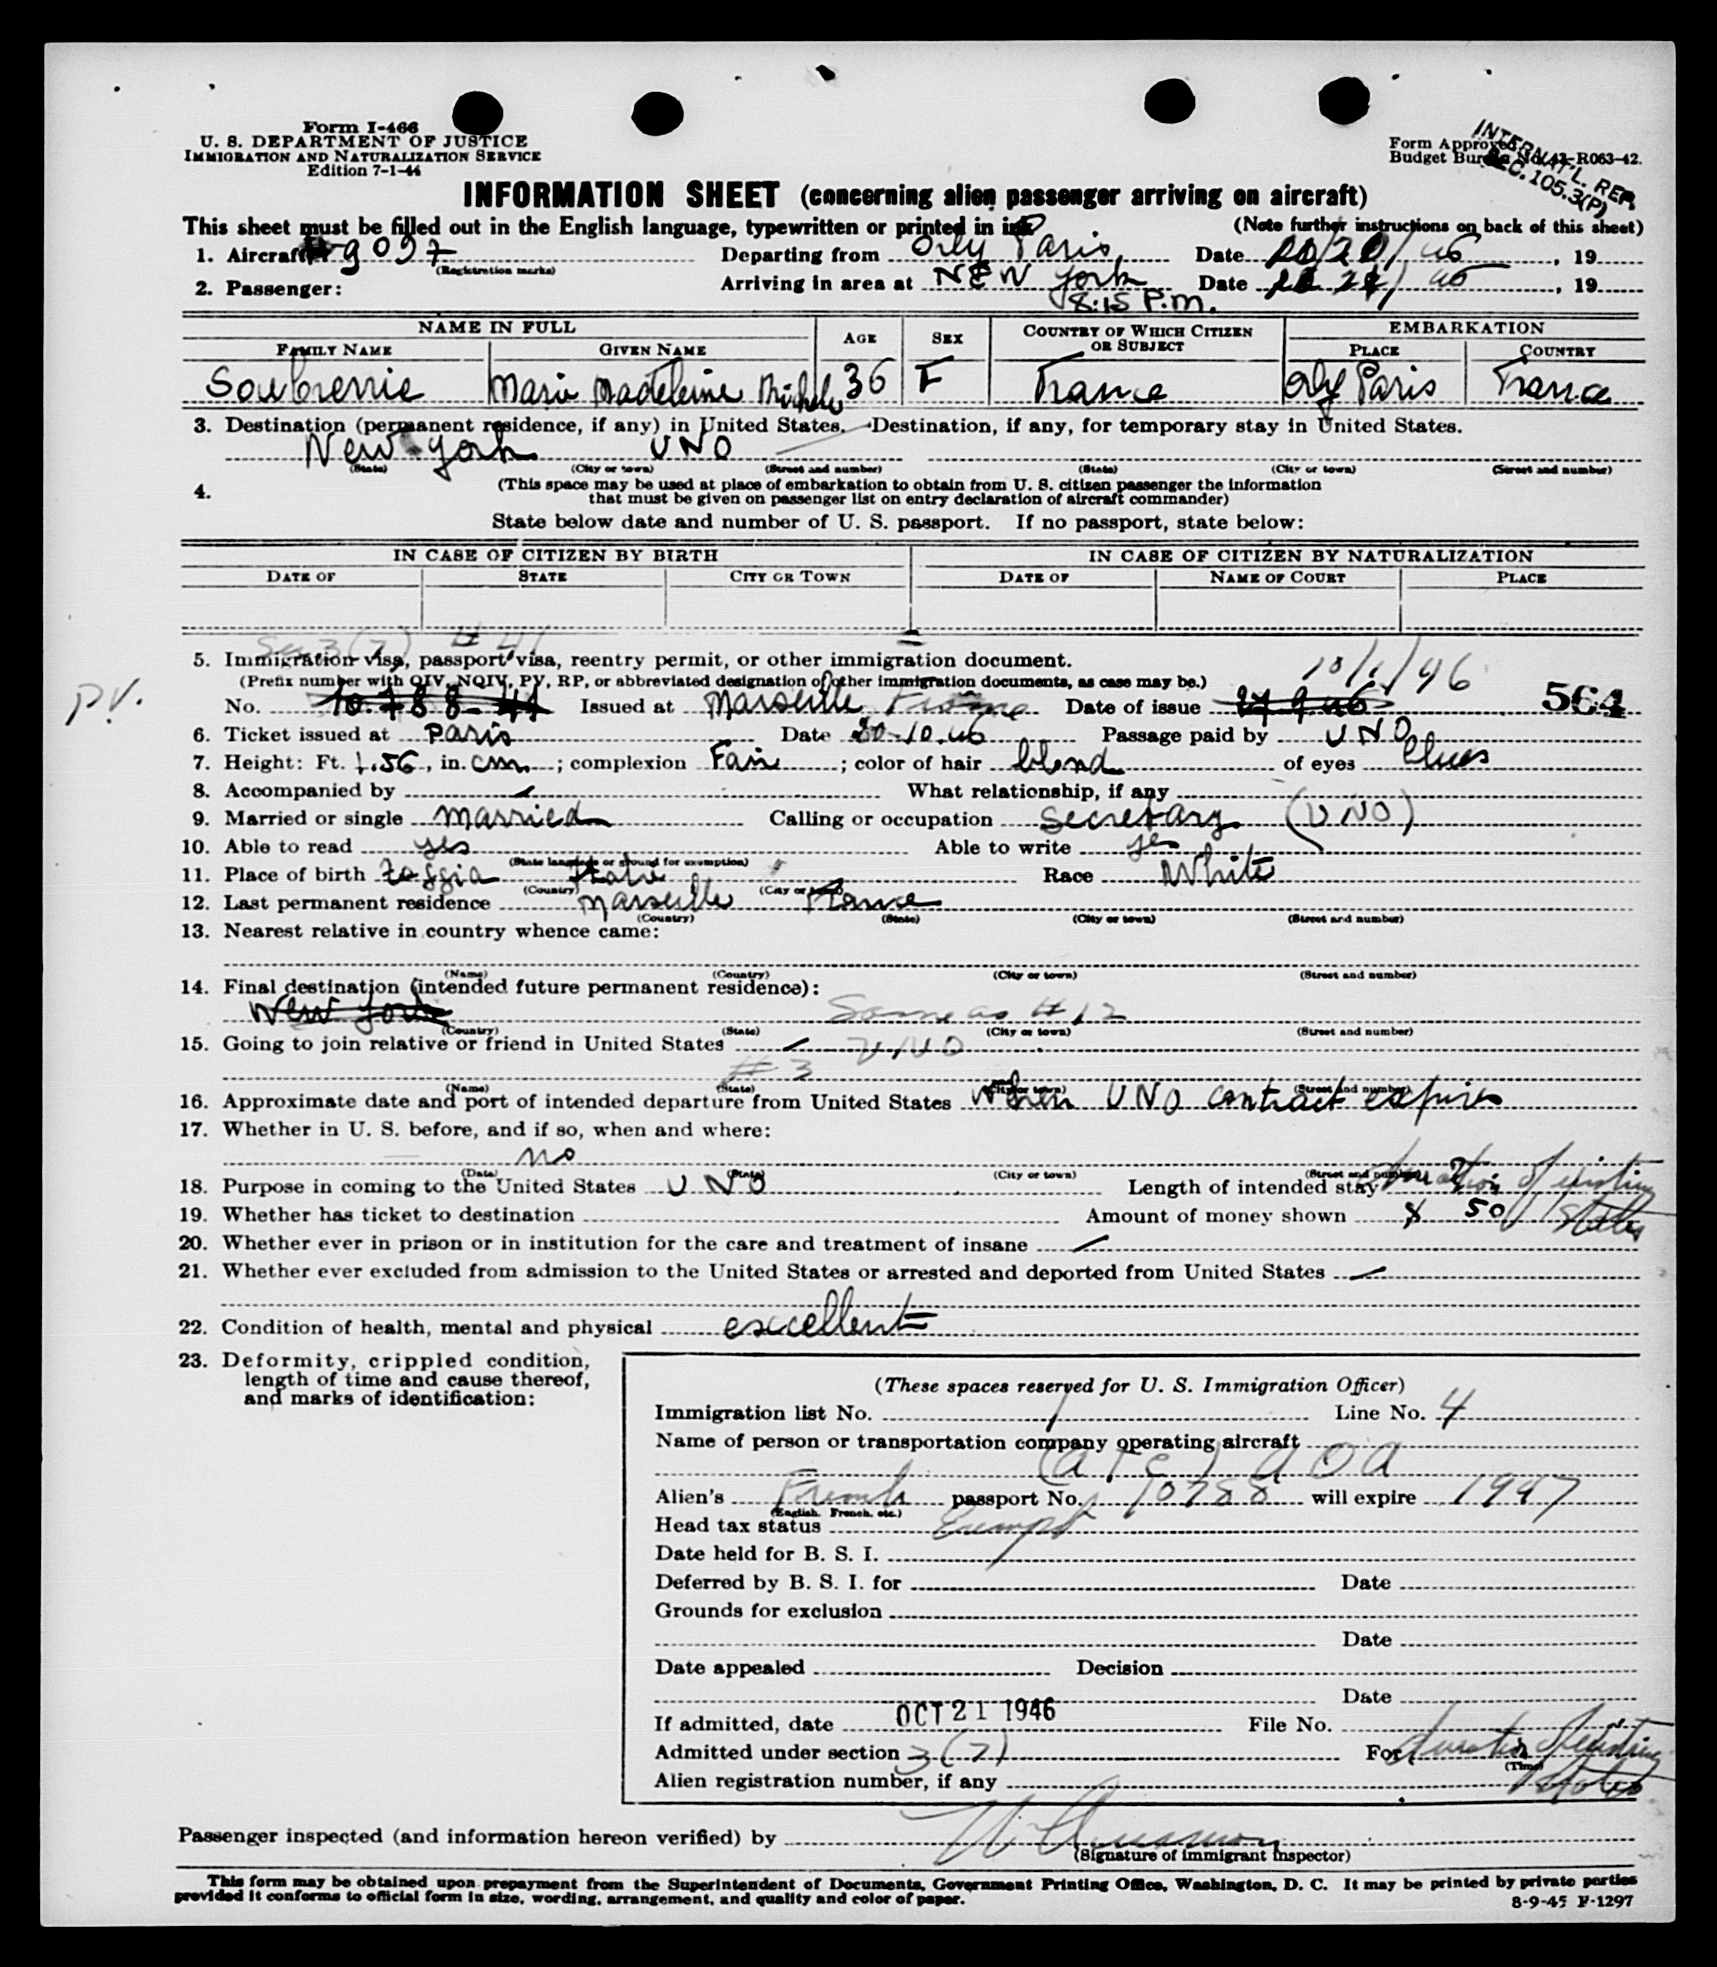 Form I-466
U. S. DEPARTMENT OF JUSTICE
IMMIGRATION AND NATURALIZATION SERVICE
Edition 7-1-44
Form Approved
Budget Bureau No. 43-R063-42.
INTERNAT'L. REP.
SEC. 105.3(P)
INFORMATION SHEET (concerning alien passenger arriving on aircraft)
This sheet must be filled out in the English language, typewritten or printed in ink
(Note further instructions on back of this sheet)
1. Aircraft 9097 Departing from Orly Paris Date /20/46, 19
(Registration marks)
2. Passenger: Arriving in area at New York Date 46, 19
8:15 P.m.
NAME IN FULL AGE SEX COUNTRY OF WHICH CITIZEN OR SUBJECT EMBARKATION
FAMILY NAME GIVEN NAME PLACE COUNTRY
Soubrenie Marie Madeleine Michele 36 F France Orly Paris France
3. Destination (permanent residence, if any) in United States. Destination, if any, for temporary stay in United States.
New York UNO
(State) (City or town) (Street and number) (State) (City or town) (Street and number)
4. (This space may be used at place of embarkation to obtain from U. S. citizen passenger the information
that must be given on passenger list on entry declaration of aircraft commander)
State below date and number of U. S. passport. If no passport, state below:
IN CASE OF CITIZEN BY BIRTH IN CASE OF CITIZEN BY NATURALIZATION
DATE OF STATE CITY OR TOWN DATE OF NAME OF COURT PLACE
Sec 3(7) # 41
5. Immigration visa, passport visa, reentry permit, or other immigration document.
10/1/46
(Prefix number with QIV, NQIV, PV, RP, or abbreviated designation of other immigration documents, as case may be.)
PV. No. 10788-41 Issued at Marseille France Date of issue 27 9 46 564
6. Ticket issued at Paris Date 20.10.46 Passage paid by UNO
7. Height: Ft. 1.56, in. cm; complexion Fair; color of hair blond of eyes blues
8. Accompanied by What relationship, if any
9. Married or single married Calling or occupation Secretary (UNO)
10. Able to read yes Able to write yes
(State language or ground for exemption)
11. Place of birth Foggia Italie Race White
(Country) (City or town)
12. Last permanent residence Marseille France
(Country) (State) (City or town) (Street and number)
13. Nearest relative in country whence came:
(Name) (Country) (City or town) (Street and number)
14. Final destination (intended future permanent residence):
New York Same as # 12
(Country) (State) (City or town) (Street and number)
15. Going to join relative or friend in United States UNO
# 3
(Name) (State) (City or town) (Street and number)
16. Approximate date and port of intended departure from United States When UNO contract expires
17. Whether in U. S. before, and if so, when and where:
no
(Date) (State) (City or town) (Street and number)
18. Purpose in coming to the United States UNO Length of intended stay duration of existing status
19. Whether has ticket to destination Amount of money shown $ 50
20. Whether ever in prison or in institution for the care and treatment of insane
21. Whether ever excluded from admission to the United States or arrested and deported from United States
22. Condition of health, mental and physical excellent
23. Deformity, crippled condition,
length of time and cause thereof,
and marks of identification:
(These spaces reserved for U. S. Immigration Officer)
Immigration list No. 1 Line No. 4
Name of person or transportation company operating aircraft
(ATC) AOA
Alien's French passport No. 10788 will expire 1947
(English, French, etc.)
Head tax status Exempt
Date held for B. S. I.
Deferred by B. S. I. for Date
Grounds for exclusion
Date
Date appealed Decision
Date
If admitted, date OCT 21 1946 File No.
Admitted under section 3(7) For duration existing status
(Time)
Alien registration number, if any
Passenger inspected (and information hereon verified) by
(Signature of Immigrant Inspector)
This form may be obtained upon prepayment from the Superintendent of Documents, Government Printing Office, Washington, D. C. It may be printed by private parties
provided it conforms to official form in size, wording, arrangement, and quality and color of paper.
8-9-45 F-1297